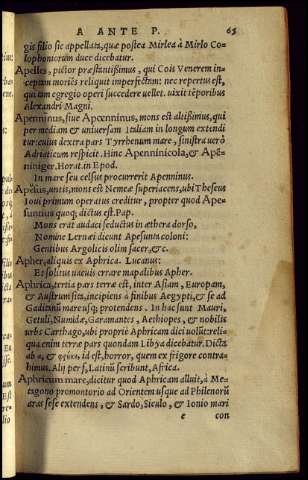 A ANTE P. 65
gis filio sic appellata, quæ postea Mirlea à Mirlo Co-
lophoniorum duce dicebatur.
Apelles, pictor præstantißimus, qui Cois Venerem in-
ceptam moriēs reliquit imperfectam: nec repertus est,
qui tam egregio operi succedere uellet. uixit tēporibus
Alexandri Magni.
Apenninus, siue Apœnninus, mons est altißimus, qui
per mediam & uniuersam Italiam in longum extendi
tur: cuius dextra pars Tyrrhenum mare, sinistra uerò
Adriaticum respicit. Hinc Apennínicola, & Apē-
níniger. Horat. in Epod.
In mare seu celsus procurerit Apenninus.
Apesus, untis, mont est Nemeæ superiacens, ubi Theseus
Ioui primum operatus creditur, propter quod Ape-
suntius quoq; dictus est. Pap.
Mons erat audaci seductus in æthera dorso,
Nomine Lernæi dicunt Apesunta coloni:
Gentibus Argolicis olim sacer, &c.
Apher, aliquis ex Aphrica. Lucanus:
Et solitus uacuis errare mapalibus Apher.
Aphrica, tertia pars terræ est, inter Asiam, Europam,
& Austrum sita, incipiens à finibus Aegypti, & se ad
Gaditanū mare usq; protendens. In hac sunt Mauri,
Getuli, Numidæ, Garamantes, Aethiopes, & nobilis
urbs Carthago, ubi propriè Aphricam dici uolūt: reli-
qua enim terræ pars quondam Libya dicebatur. Dicta
ab α, & φρίκη, id est, horror, quem ex frigore contra-
himus. Alij per f, Latinū scribunt, Africa.
Aphricum mare, dicitur quod Aphricam alluit, à Me-
tagono promontorio ad Orientem usque ad Philenorū
aras sese extendens, & Sardo, Siculo, & Ionio mari
e con